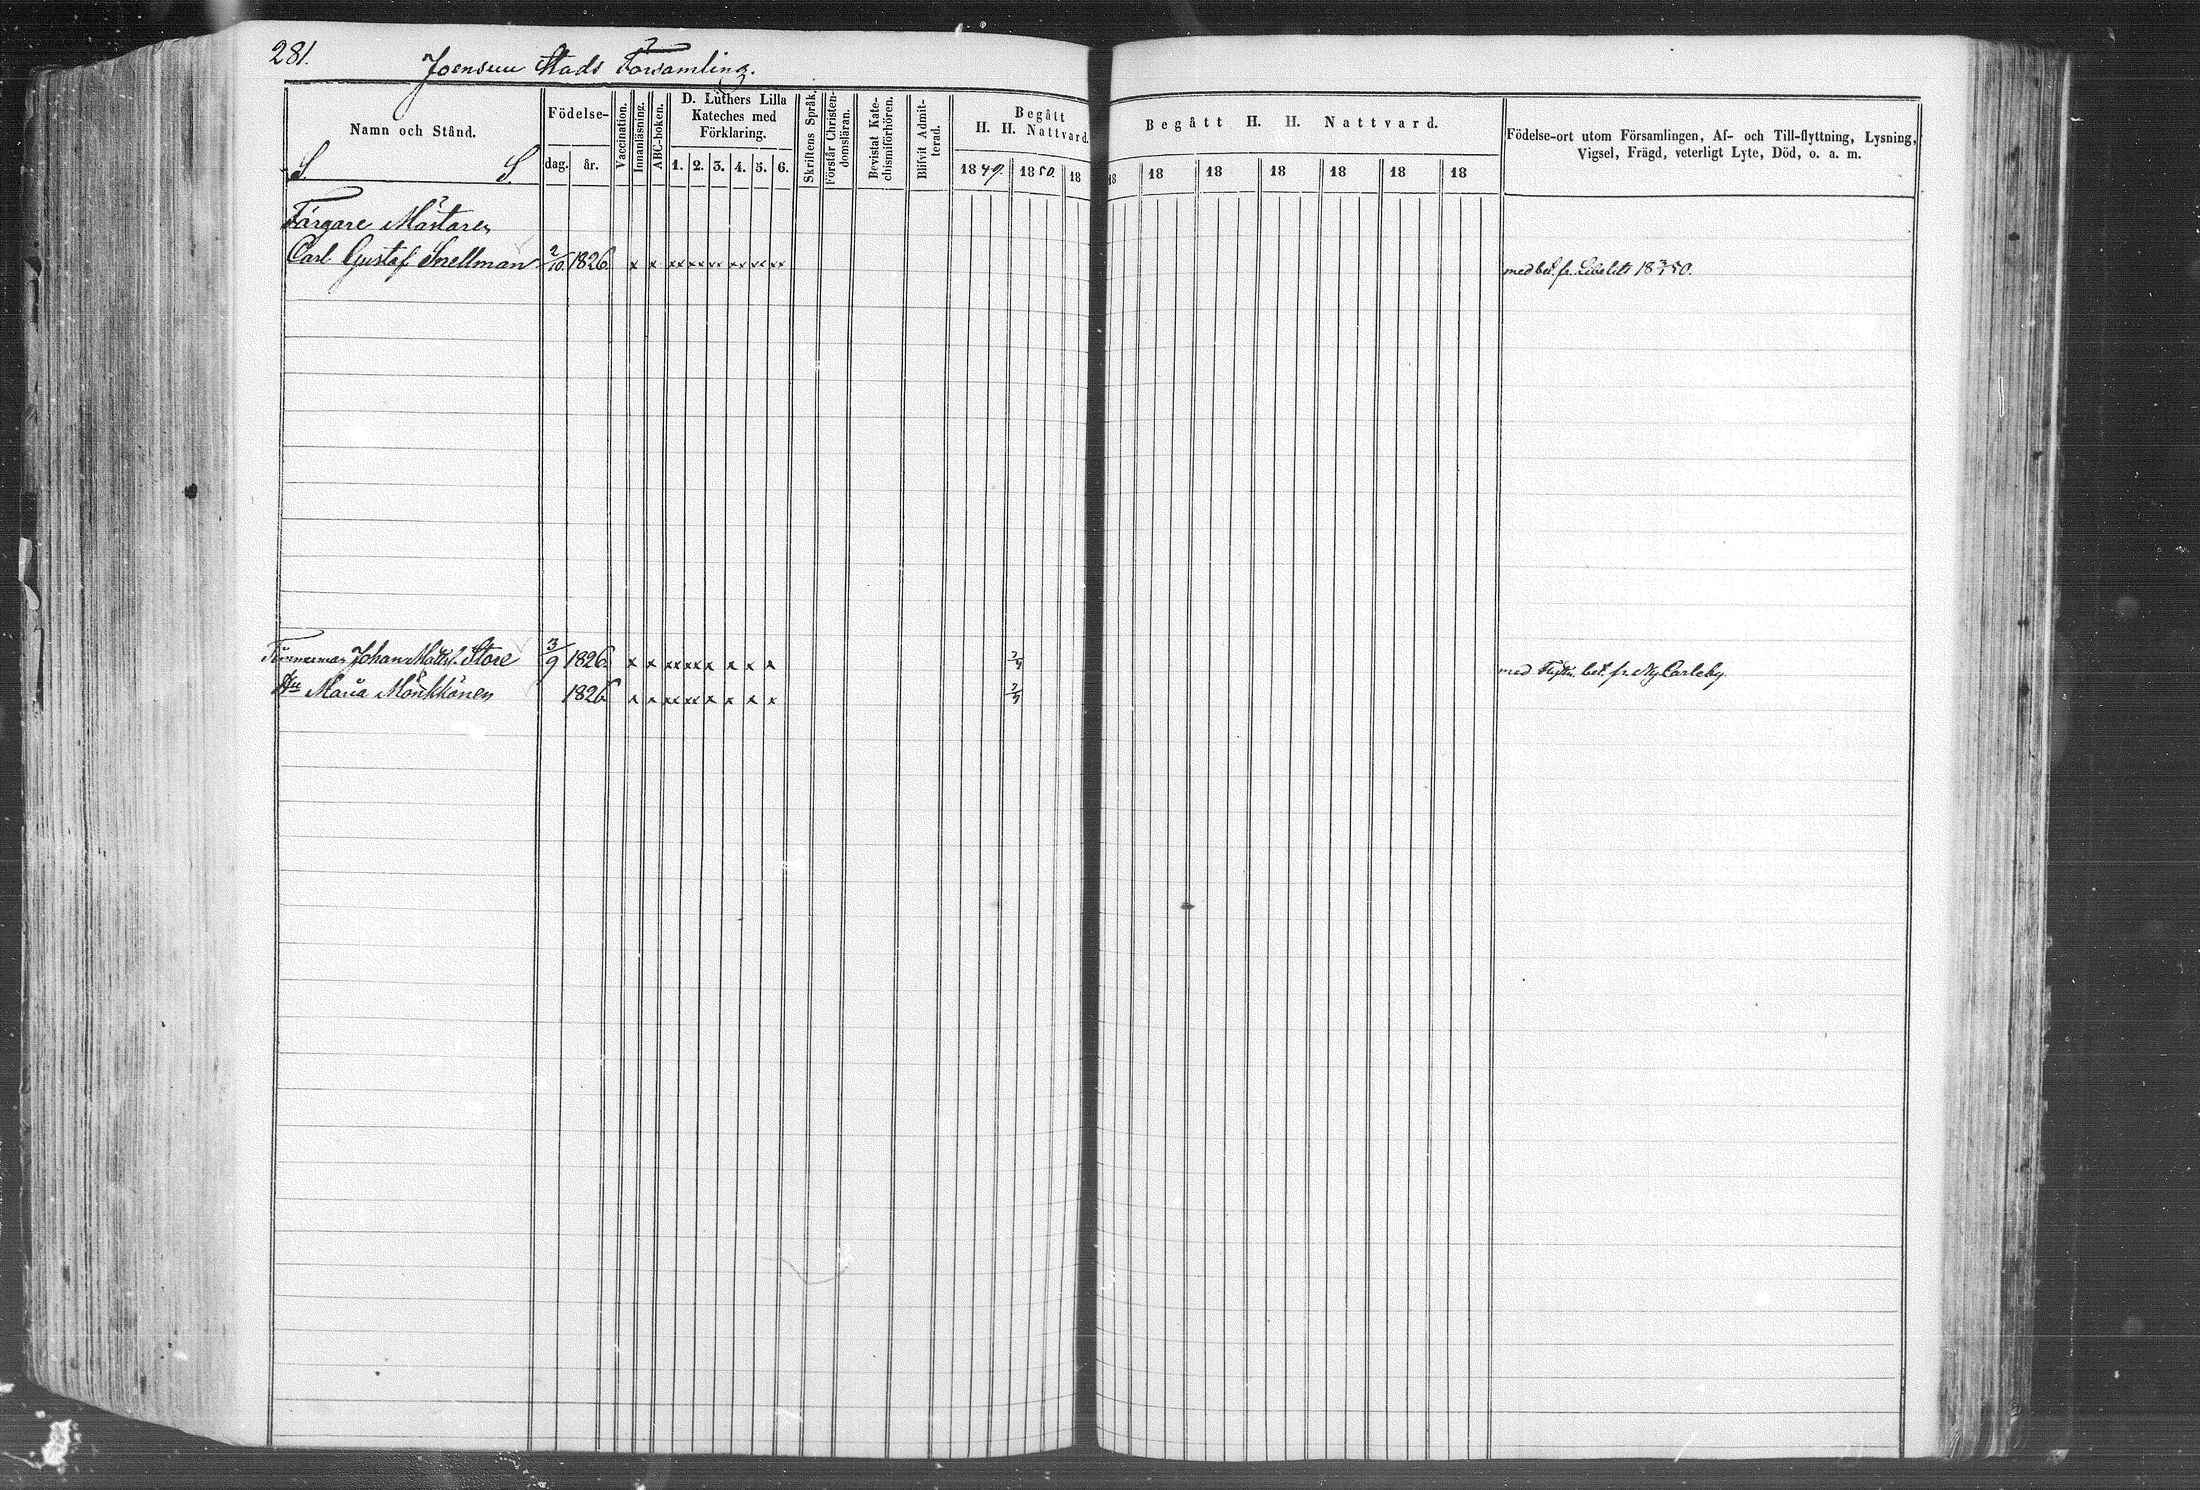 281.
Joensuu Stads Församling.
Namn och Stånd.
S. S.
Födelse-
dag. år.
Vaccination.
Innanläsning.
ABC-boken.
D. Luthers Lilla
Kateches med
Förklaring.
1. 2. 3. 4. 5. 6.
Skriftens Språk.
Förstår Christen-
domsläran.
Bevistat Kate-
chismiförhören.
Blifvit Admit-
terad.
Begått
H. H. Nattvard.
1849. 1850. 18
Begått H. H. Nattvard.
18 18 18 18 18 18 18
Födelse-ort utom Församlingen, Af- och Till-flyttning, Lysning,
Vigsel, Frägd, veterligt Lyte, Död, o. a. m.
Färgare Mästaren
Carl Gustaf Snellman 2/10 1826 x x xx xx xx xx xx xx med bet. fr. Libelits 18 50.
Johan Matts. Store 3/9 1826 x x xx xx x x x x med bet. fr. Ny Carleby
Hu Maria Mönkkönen 1826 x x xx xx x x x x